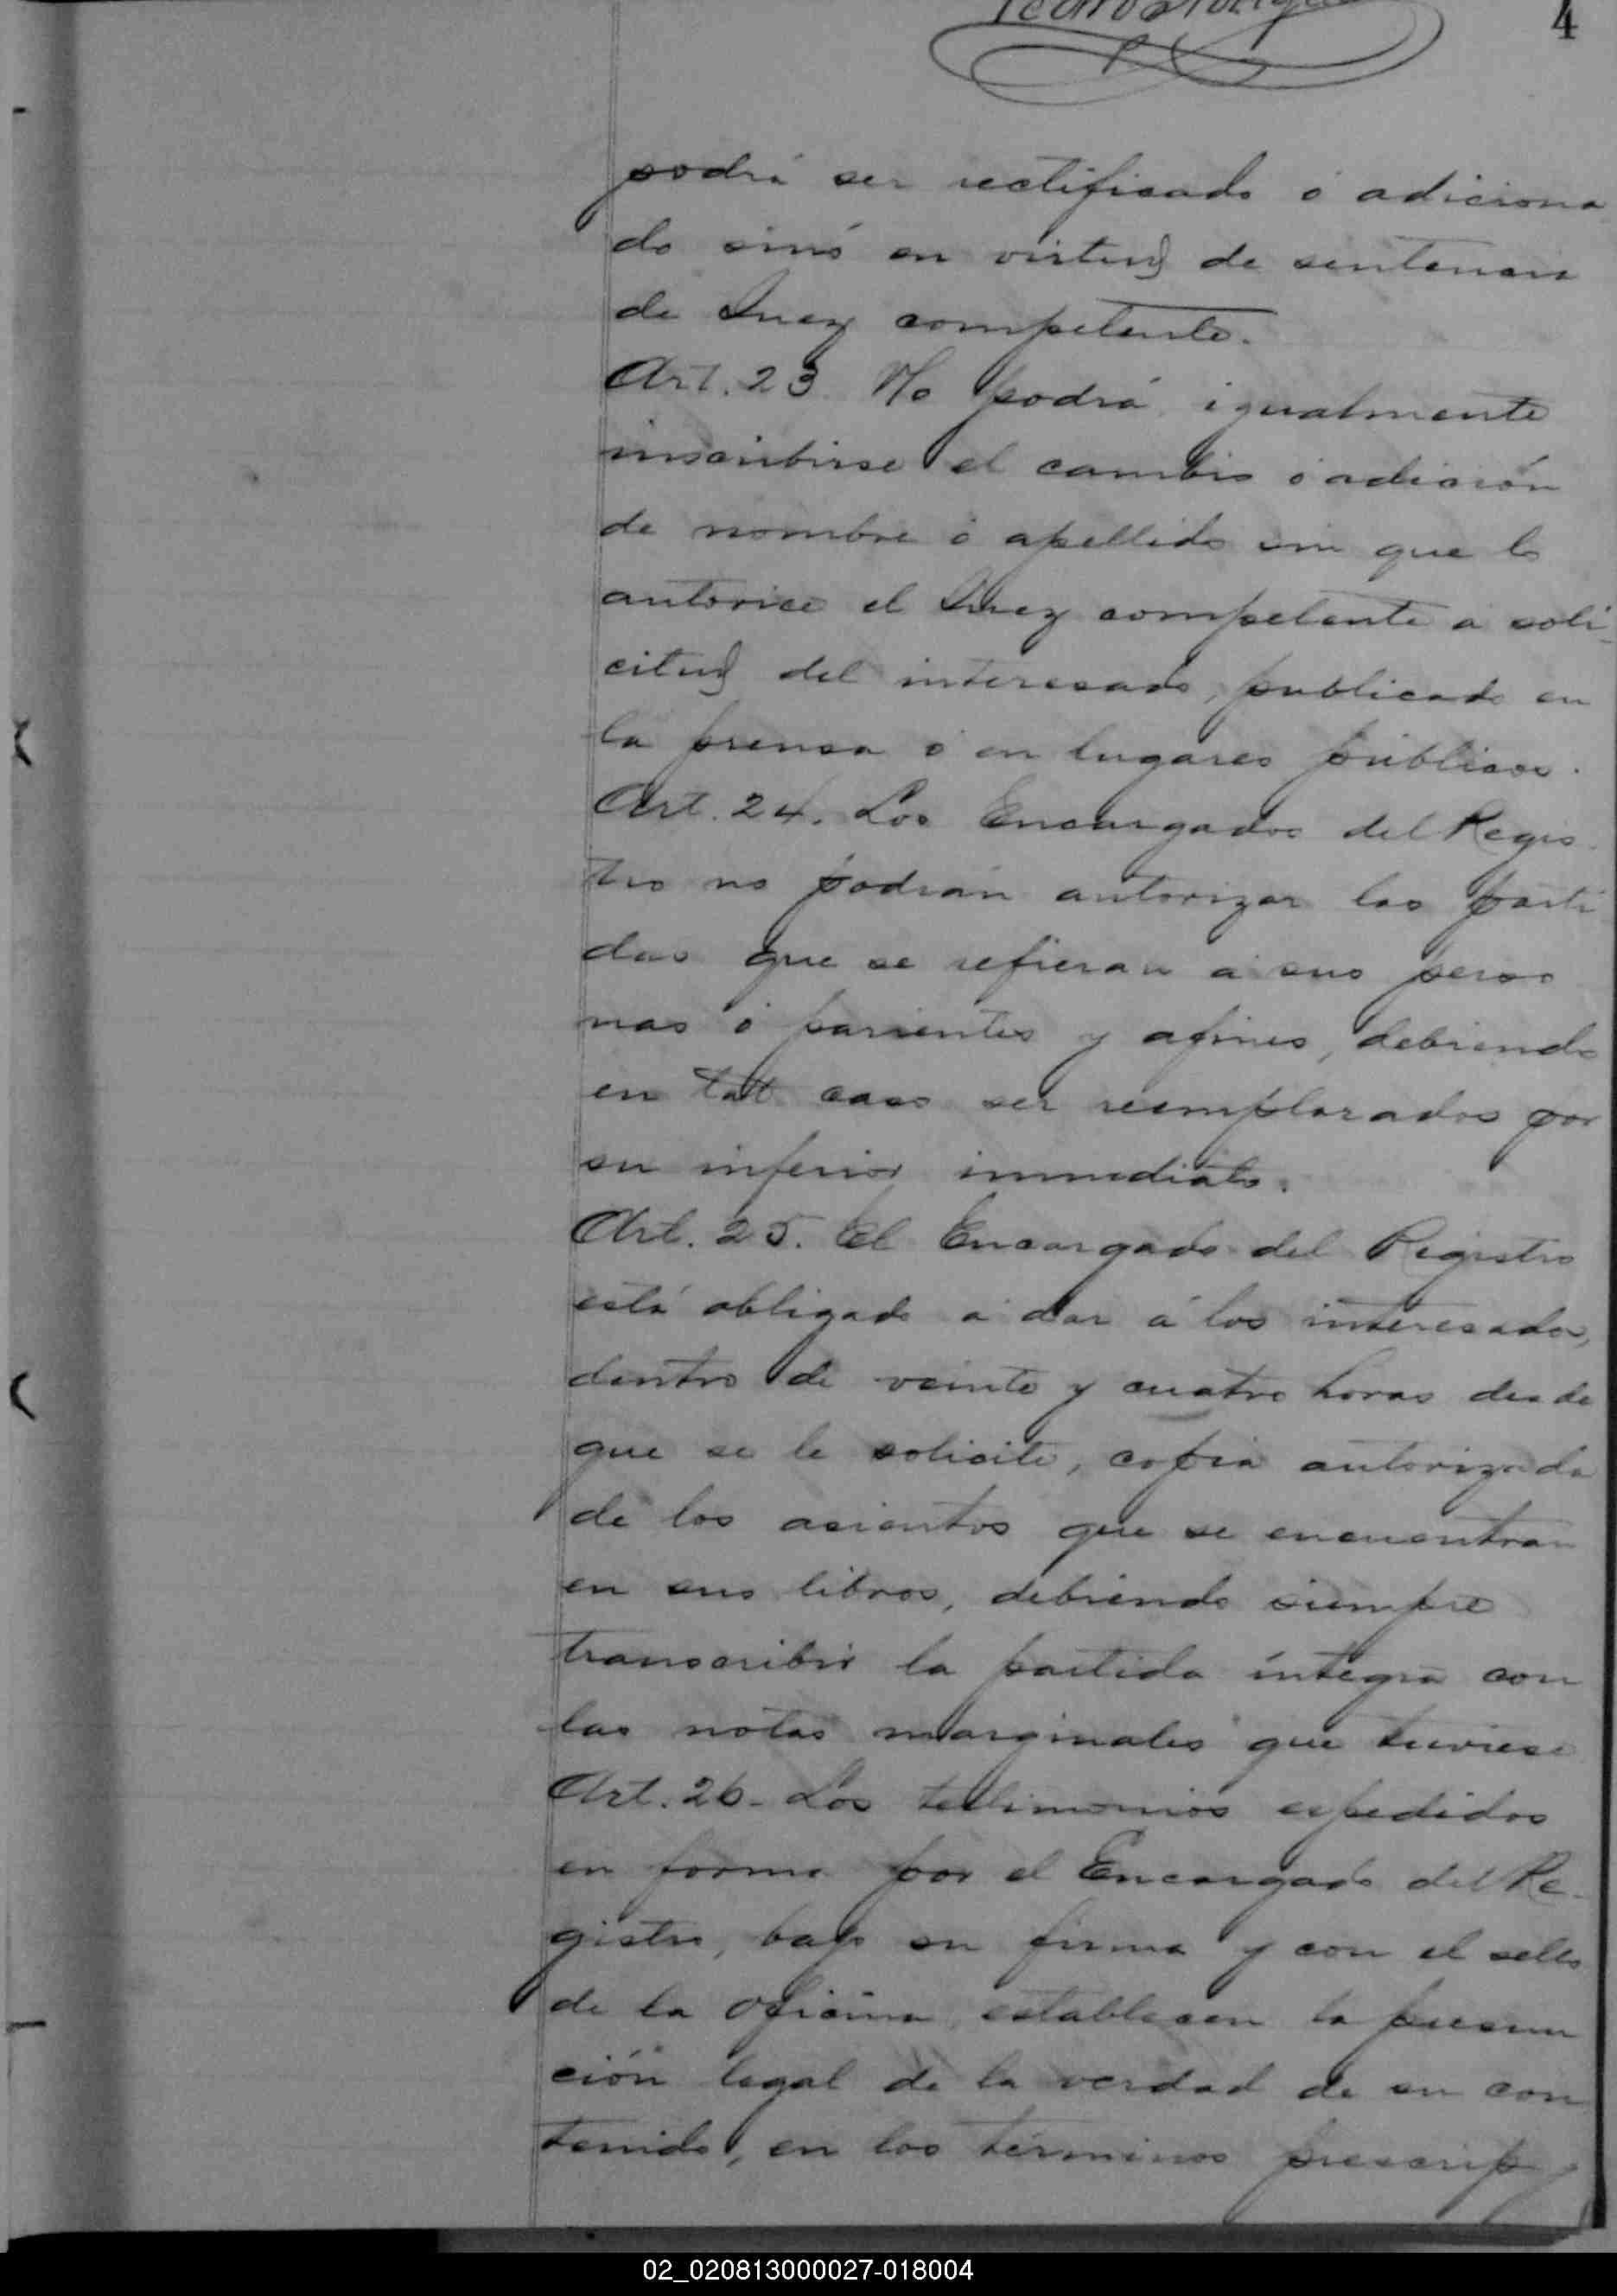 4
podrá ser rectificado ó adiciona
do sinó en virtud de sentencia
de Juez competente.
Art. 23. No podrá igualmente
inscribirse el cambio ó adición
de nombre ó apellido sin que lo
autorice el Juez competente a soli-
citud del interesado, publicado en
la prensa ó en lugares públicos.
Art. 24. Los Encargados del Regis-
tro no podrán autorizar las parti
das que se refieran a sus perso
nas ó parientes y afines, debiendo
en tal caso ser reemplazados por
su inferior inmediato.
Art. 25. El Encargado del Registro
está obligado a dar á los interesados,
dentro de veinte y cuatro horas desde
que se le solicite, copia autorizada
de los asientos que se encuentran
en sus libros, debiendo siempre
transcribir la partida íntegra con
las notas marginales que tuviese
Art. 26- Los testimonios expedidos
en forma por el Encargado del Re-
gistro, bajo su firma y con el sello
de la oficina establecen la presun
ción legal de la verdad de su con
tenido, en los términos prescrip
02_020813000027-018004